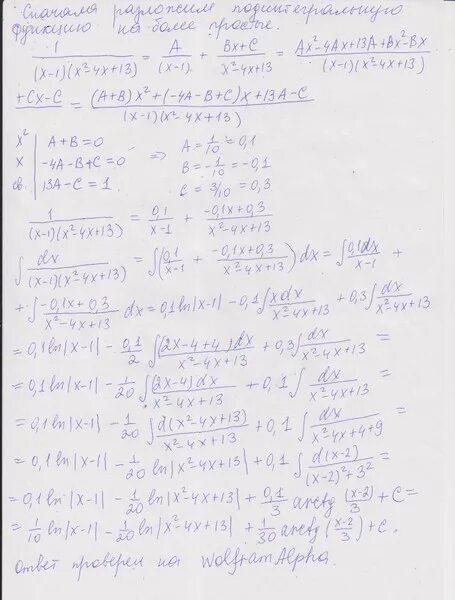 Сначала разложим подинтегральную
функцию на более простые.
1/((x-1)(x²-4x+13)) = A/(x-1) + (Bx+C)/(x²-4x+13) = (Ax²-4Ax+13A+Bx²-Bx
+Cx-C)/((x-1)(x²-4x+13)) = ((A+B)x²+(-4A-B+C)x+13A-C)/((x-1)(x²-4x+13))
x² | A+B=0   A=1/10=0,1
x | -4A-B+C=0 ⇒ B=-1/10=-0,1
св. | 13A-C=1.   C=3/10=0,3
1/((x-1)(x²-4x+13)) = 0,1/(x-1) + (-0,1x+0,3)/(x²-4x+13)
∫dx/((x-1)(x²-4x+13)) = ∫(0,1/(x-1) + (-0,1x+0,3)/(x²-4x+13))dx = ∫0,1dx/(x-1) +
+ ∫(-0,1x+0,3)/(x²-4x+13) dx = 0,1ln|x-1| - 0,1∫xdx/(x²-4x+13) + 0,3∫dx/(x²-4x+13)
= 0,1ln|x-1| - 0,1/2 ∫(2x-4+4)dx/(x²-4x+13) + 0,3∫dx/(x²-4x+13) =
= 0,1ln|x-1| - 1/20 ∫(2x-4)dx/(x²-4x+13) + 0,1∫dx/(x²-4x+13) =
= 0,1ln|x-1| - 1/20 ∫d(x²-4x+13)/(x²-4x+13) + 0,1∫dx/(x²-4x+4+9) =
= 0,1ln|x-1| - 1/20 ln|x²-4x+13| + 0,1∫d(x-2)/((x-2)²+3²) =
= 0,1ln|x-1| - 1/20 ln|x²-4x+13| + 0,1/3 arctg (x-2)/3 + C =
= 1/10 ln|x-1| - 1/20 ln|x²-4x+13| + 1/30 arctg (x-2)/3 + C.
Ответ проверен на WolframAlpha.